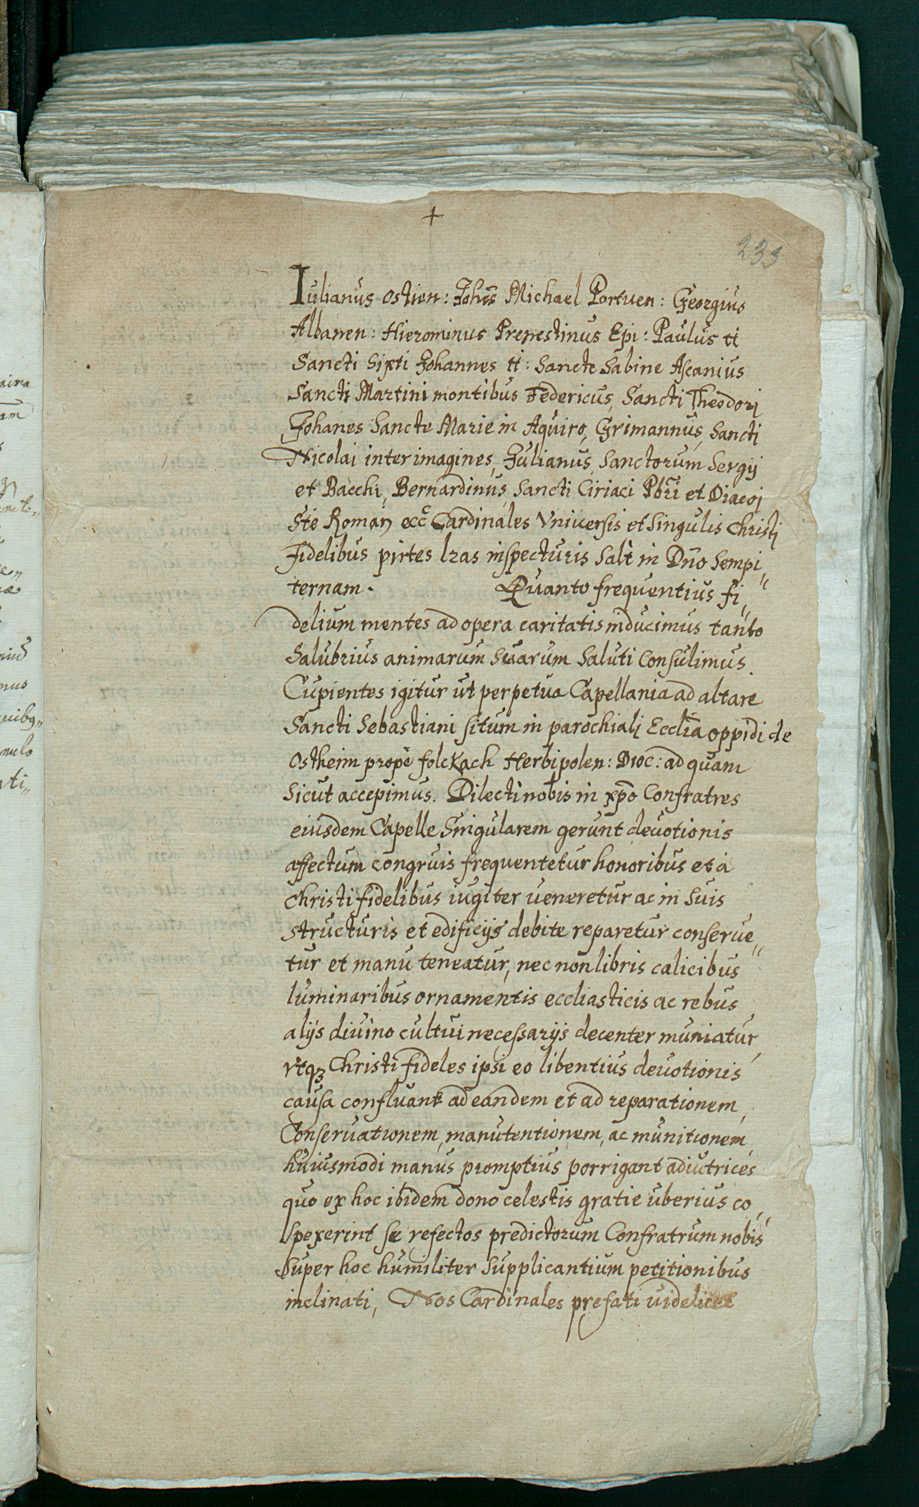 +
233
Iulianus Ostien: Johēs Michael Portuen: Georgius
Albanen: Hierominus Prenestinus Epi: Paulus ti
Sancti Sixti Johannes ti: Sancte Sabine Ascanius
Sancti Martini montibus Federicus, Sancti Theodorj
Johanes Sancte Marie in Aquiro, Grimannus, Sancti
Nicolai inter imagines, Julianus, Sanctorum Sergij
et Bacchi, Bernardinus, Sancti Ciriaci Pbri et Diacoj
Ste Roman ecc Cardinales Vniuersis et singulis Christi
fidelibus pñtes lras inspecturis Salt in Dño Sempi"
ternam. Quanto frequentius fi"
delium mentes ad opera caritatis inducimus tanto
Salubrius animarum suarum Saluti consulimus
Cupientes igitur ut perpetua Capellania ad altare
Sancti Sebastiani situm in parochiali Ecclia oppidi de
Ostheim prope folckach Herbipolen: Dioc: ad quam
Sicut accepimus. Dilecti nobis in xpo Confratres
eiusdem Capelle Singularem gerunt deuotionis
affectum congruis frequentetur honoribus et a
Christi fidelibus iugiter ueneretur ac in suis
structuris et edificijs debite reparetur conserue"
tur et manu teneatur, nec non libris calicibus
luminaribus ornamentis eccliasticis ac rebus
alijs diuino cultui necessarijs decenter muniatur,
vtqz Christi fideles ipsi eo libentius deuotionis
causa confluant ad eandem et ad reparationem,
Conseruationem, manutentionem, ac munitionem
huiusmodi manus promptius porrigant adiutrices
quo ex hoc ibidem dono celestis gratie uberius co"
spexerint se refectos predictorum Confratrum nobis
super hoc humiliter Supplicantium petitionibus
inclinati, Nos Cardinales prefati uidelicet